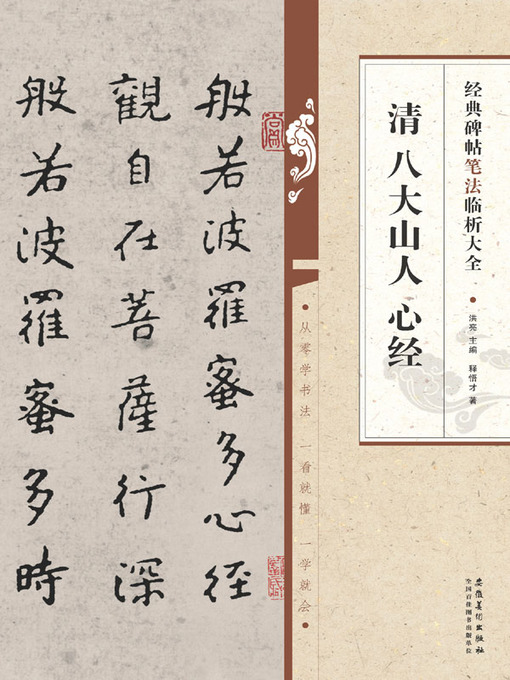 般若波羅蜜多心经
觀自在菩薩行深
般若波羅蜜多時
经典碑帖笔法临析大全
清 八大山人 心经
洪亮 主编 释悟才 著
• 从零学书法 一看就懂 一学就会 •
安徽美术出版社
全国百佳图书出版单位